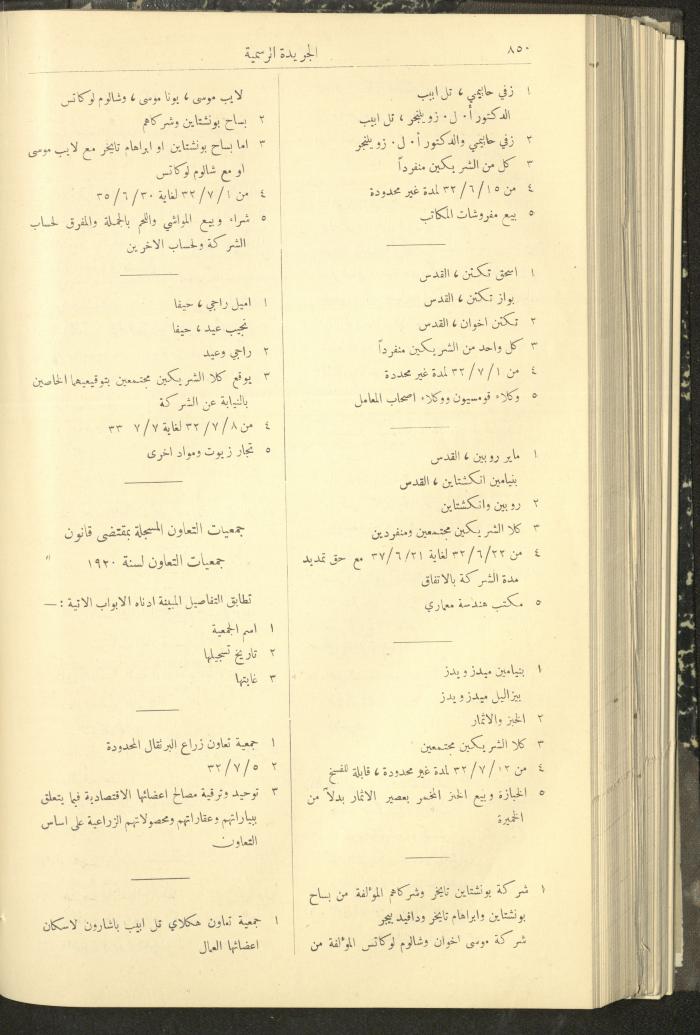 ٨٥٠
الجريدة الرسمية
١ زفي حاييمي، تل ابيب
الدكتور أ. ل. زويلنجر، تل ابيب
٢ زفي حاييمي والدكتور أ. ل. زويلنجر
٣ كل من الشريكين منفرداً
٤ من ٣٢/٦/١٥ لمدة غير محدودة
٥ بيع مفروشات المكاتب
١ اسحق تكتن، القدس
بواز تكتن، القدس
٢ تكتن اخوان، القدس
٣ كل واحد من الشريكين منفرداً
٤ من ٣٢/٧/١ لمدة غير محددة
٥ وكلاء قومسيون ووكلاء اصحاب المعامل
١ ماير روبين، القدس
بنيامين انكشتاين، القدس
٢ روبين وانكشتاين
٣ كلا الشريكين مجتمعين ومنفردين
٤ من ٣٢/٦/٢٢ لغاية ٣٧/٦/٢١ مع حق تمديد
مدة الشركة بالاتفاق
٥ مكتب هندسة معماري
١ بنيامين ميدزويدز
بيزاليل ميدزويدز
٢ الخبز والاثمار
٣ كلا الشريكين مجتمعين
٤ من ٣٢/٧/١٢ لمدة غير محدودة، قابلة للفسخ
٥ الخبازة وبيع الخبز المخمر بعصير الاثمار بدلاً من
الخميرة
١ شركة بونشتاين تايخر وشركاهم المؤلفة من بساح
بونشتاين وابراهام تايخر ودافيد بيجر
شركة موسى اخوان وشالوم لوكاتس المؤلفة من
لايب موسى، يونا موسى، وشالوم لوكاتس
٢ بساح بونشتاين وشركاهم
٣ اما بساح بونشتاين او ابراهام تايخر مع لايب موسى
او مع شالوم لوكاتس
٤ من ٣٢/٧/١ لغاية ٣٥/٦/٣٠
٥ شراء وبيع المواشي واللحم بالجملة والمفرق لحساب
الشركة ولحساب الاخرين
١ اميل راجي، حيفا
نجيب عيد، حيفا
٢ راجي وعيد
٣ يوقع كلا الشريكين مجتمعين بتوقيعيهما الخاصين
بالنيابة عن الشركة
٤ من ٣٢/٧/٨ لغاية ٧/٧ ٣٣
٥ تجار زيوت ومواد اخرى
جمعيات التعاون المسجلة بمقتضى قانون
جمعيات التعاون لسنة ١٩٢٠ "
تطابق التفاصيل المبينة ادناه الابواب الاتية :—
١ اسم الجمعية
٢ تاريخ تسجيلها
٣ غايتها
١ جمعية تعاون زراع البرتقال المحدودة
٢ ٣٢/٧/٥
٣ توحيد وترقية مصالح اعضائها الاقتصادية فيما يتعلق
ببياراتهم وعقاراتهم ومحصولاتهم الزراعية على اساس
التعاون
١ جمعية تعاون هكلاي تل ابيب باشارون لاسكان
اعضائها العمال